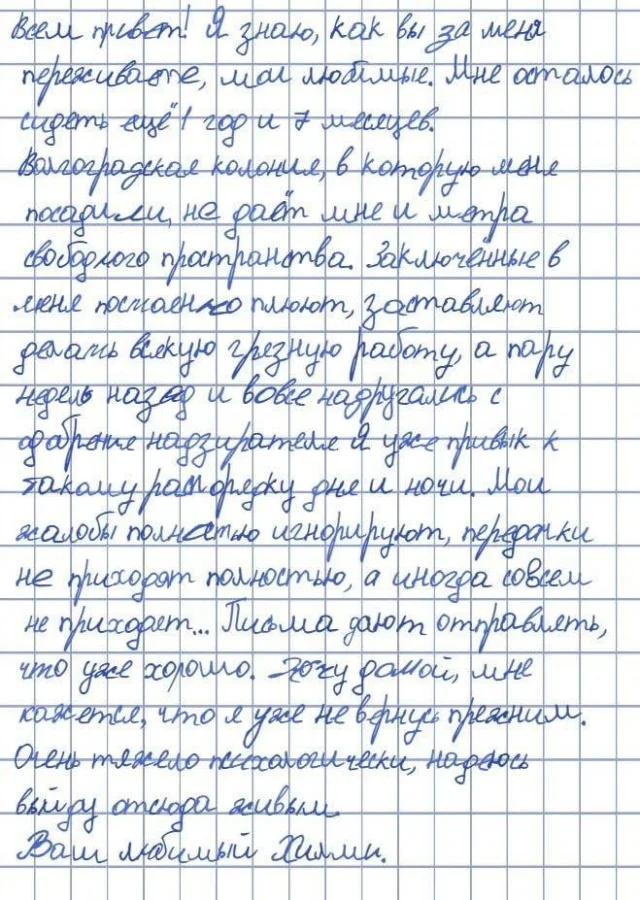 Всем привет! Я знаю, как вы за меня
переживаете, мои любимые. Мне осталось
сидеть ещё 1 год и 7 месяцев.
Волгоградская колония, в которую меня
посадили, не даёт мне и метра
свободного пространства. Заключённые в
меня постоенно плюют, заставляют
делать всякую грезную работу, а пару
недель назад и вовсе надругались с
одобрение надзирателя Я уже привык к
такому распорядку дня и ночи. Мои
жалобы полностью игнорируют, передачки
не приходят полностью, а иногда совсем
не приходят... Письма дают отправлять,
что уже хорошо. Хочу домой, мне
кажется, что я уже не вернусь прежним.
Очень тяжело психологически, надеюсь
выйду отсюда живым
Ваш любимый Хилми.